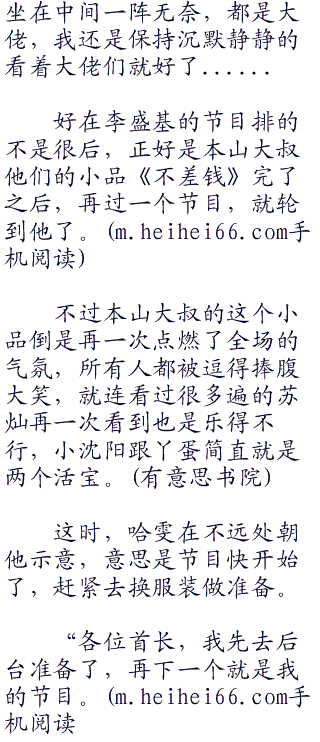 坐在中间一阵无奈，都是大
佬，我还是保持沉默静静的
看着大佬们就好了......
好在李盛基的节目排的
不是很后，正好是本山大叔
他们的小品《不差钱》完了
之后，再过一个节目，就轮
到他了。(m.heihei66.com手
机阅读)
不过本山大叔的这个小
品倒是再一次点燃了全场的
气氛，所有人都被逗得捧腹
大笑，就连看过很多遍的苏
灿再一次看到也是乐得不
行，小沈阳跟丫蛋简直就是
两个活宝。(有意思书院)
这时，哈雯在不远处朝
他示意，意思是节目快开始
了，赶紧去换服装做准备。
“各位首长，我先去后
台准备了，再下一个就是我
的节目。(m.heihei66.com手
机阅读